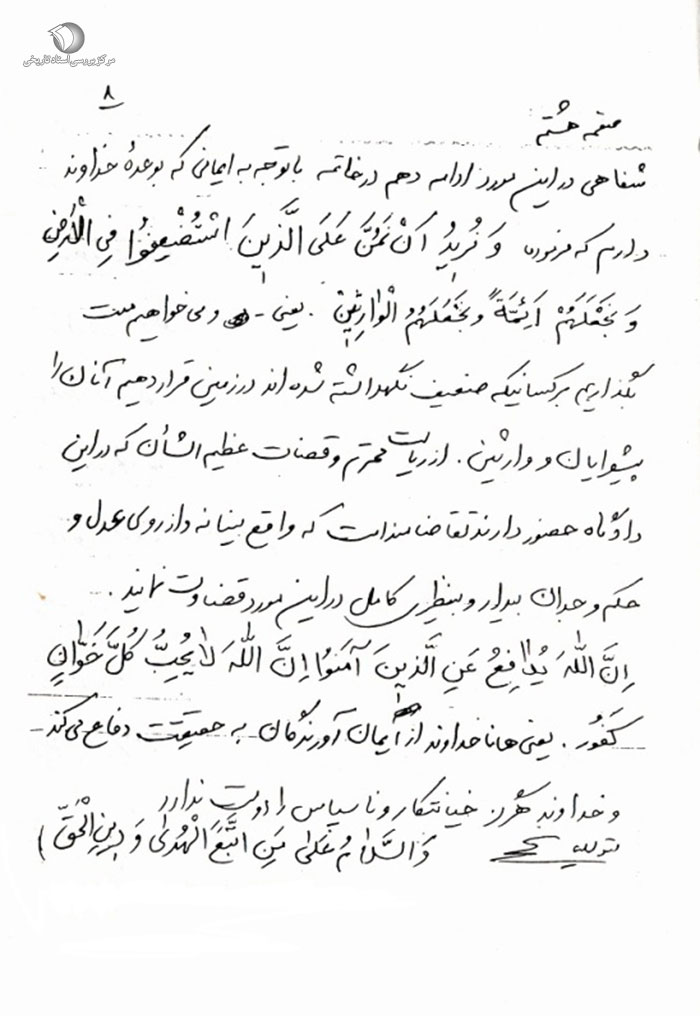 مرکز بررسی اسناد تاریخی
۸
صفحه هشتم
شفاهی در این مورد ادامه دهم در خاتمه با توجه به ایمانی که بوعدهٔ خداوند
دارم که فرموده وَ نُریدُ اَنْ نَمُنَّ عَلَی الَّذینَ اسْتُضْعِفُوا فِی الْاَرْضِ
وَ نَجْعَلَهُمْ اَئِمَّةً وَ نَجْعَلَهُمُ الْوارِثینَ . یعنی - و می خواهیم منت
بگذاریم بر کسانیکه ضعیف نگهداشته شده اند در زمین قرار دهیم آنان را
پیشوایان و وارثین . از ریاست محترم و قضات عظیم الشأن که در این
دادگاه حضور دارند تقاضامندست که واقع بینانه و از روی عدل و
حکم وجدان بیدار و بینظری کامل در این مورد قضاوت نمائید .
اِنَّ اللّٰهَ یُدافِعُ عَنِ الَّذینَ آمَنُوا اِنَّ اللّٰهَ لا یُحِبُّ کُلَّ خَوّانٍ
کَفُورٍ . یعنی همانا خداوند از ایمان آورندگان به حقیقت دفاع می کند
و خداوند هرگز خیانتکار و ناسپاس را دوست ندارد
وَ السَّلامُ عَلی مَنِ اتَّبَعَ الْهُدی وَ دینِ الْحَقِّ )